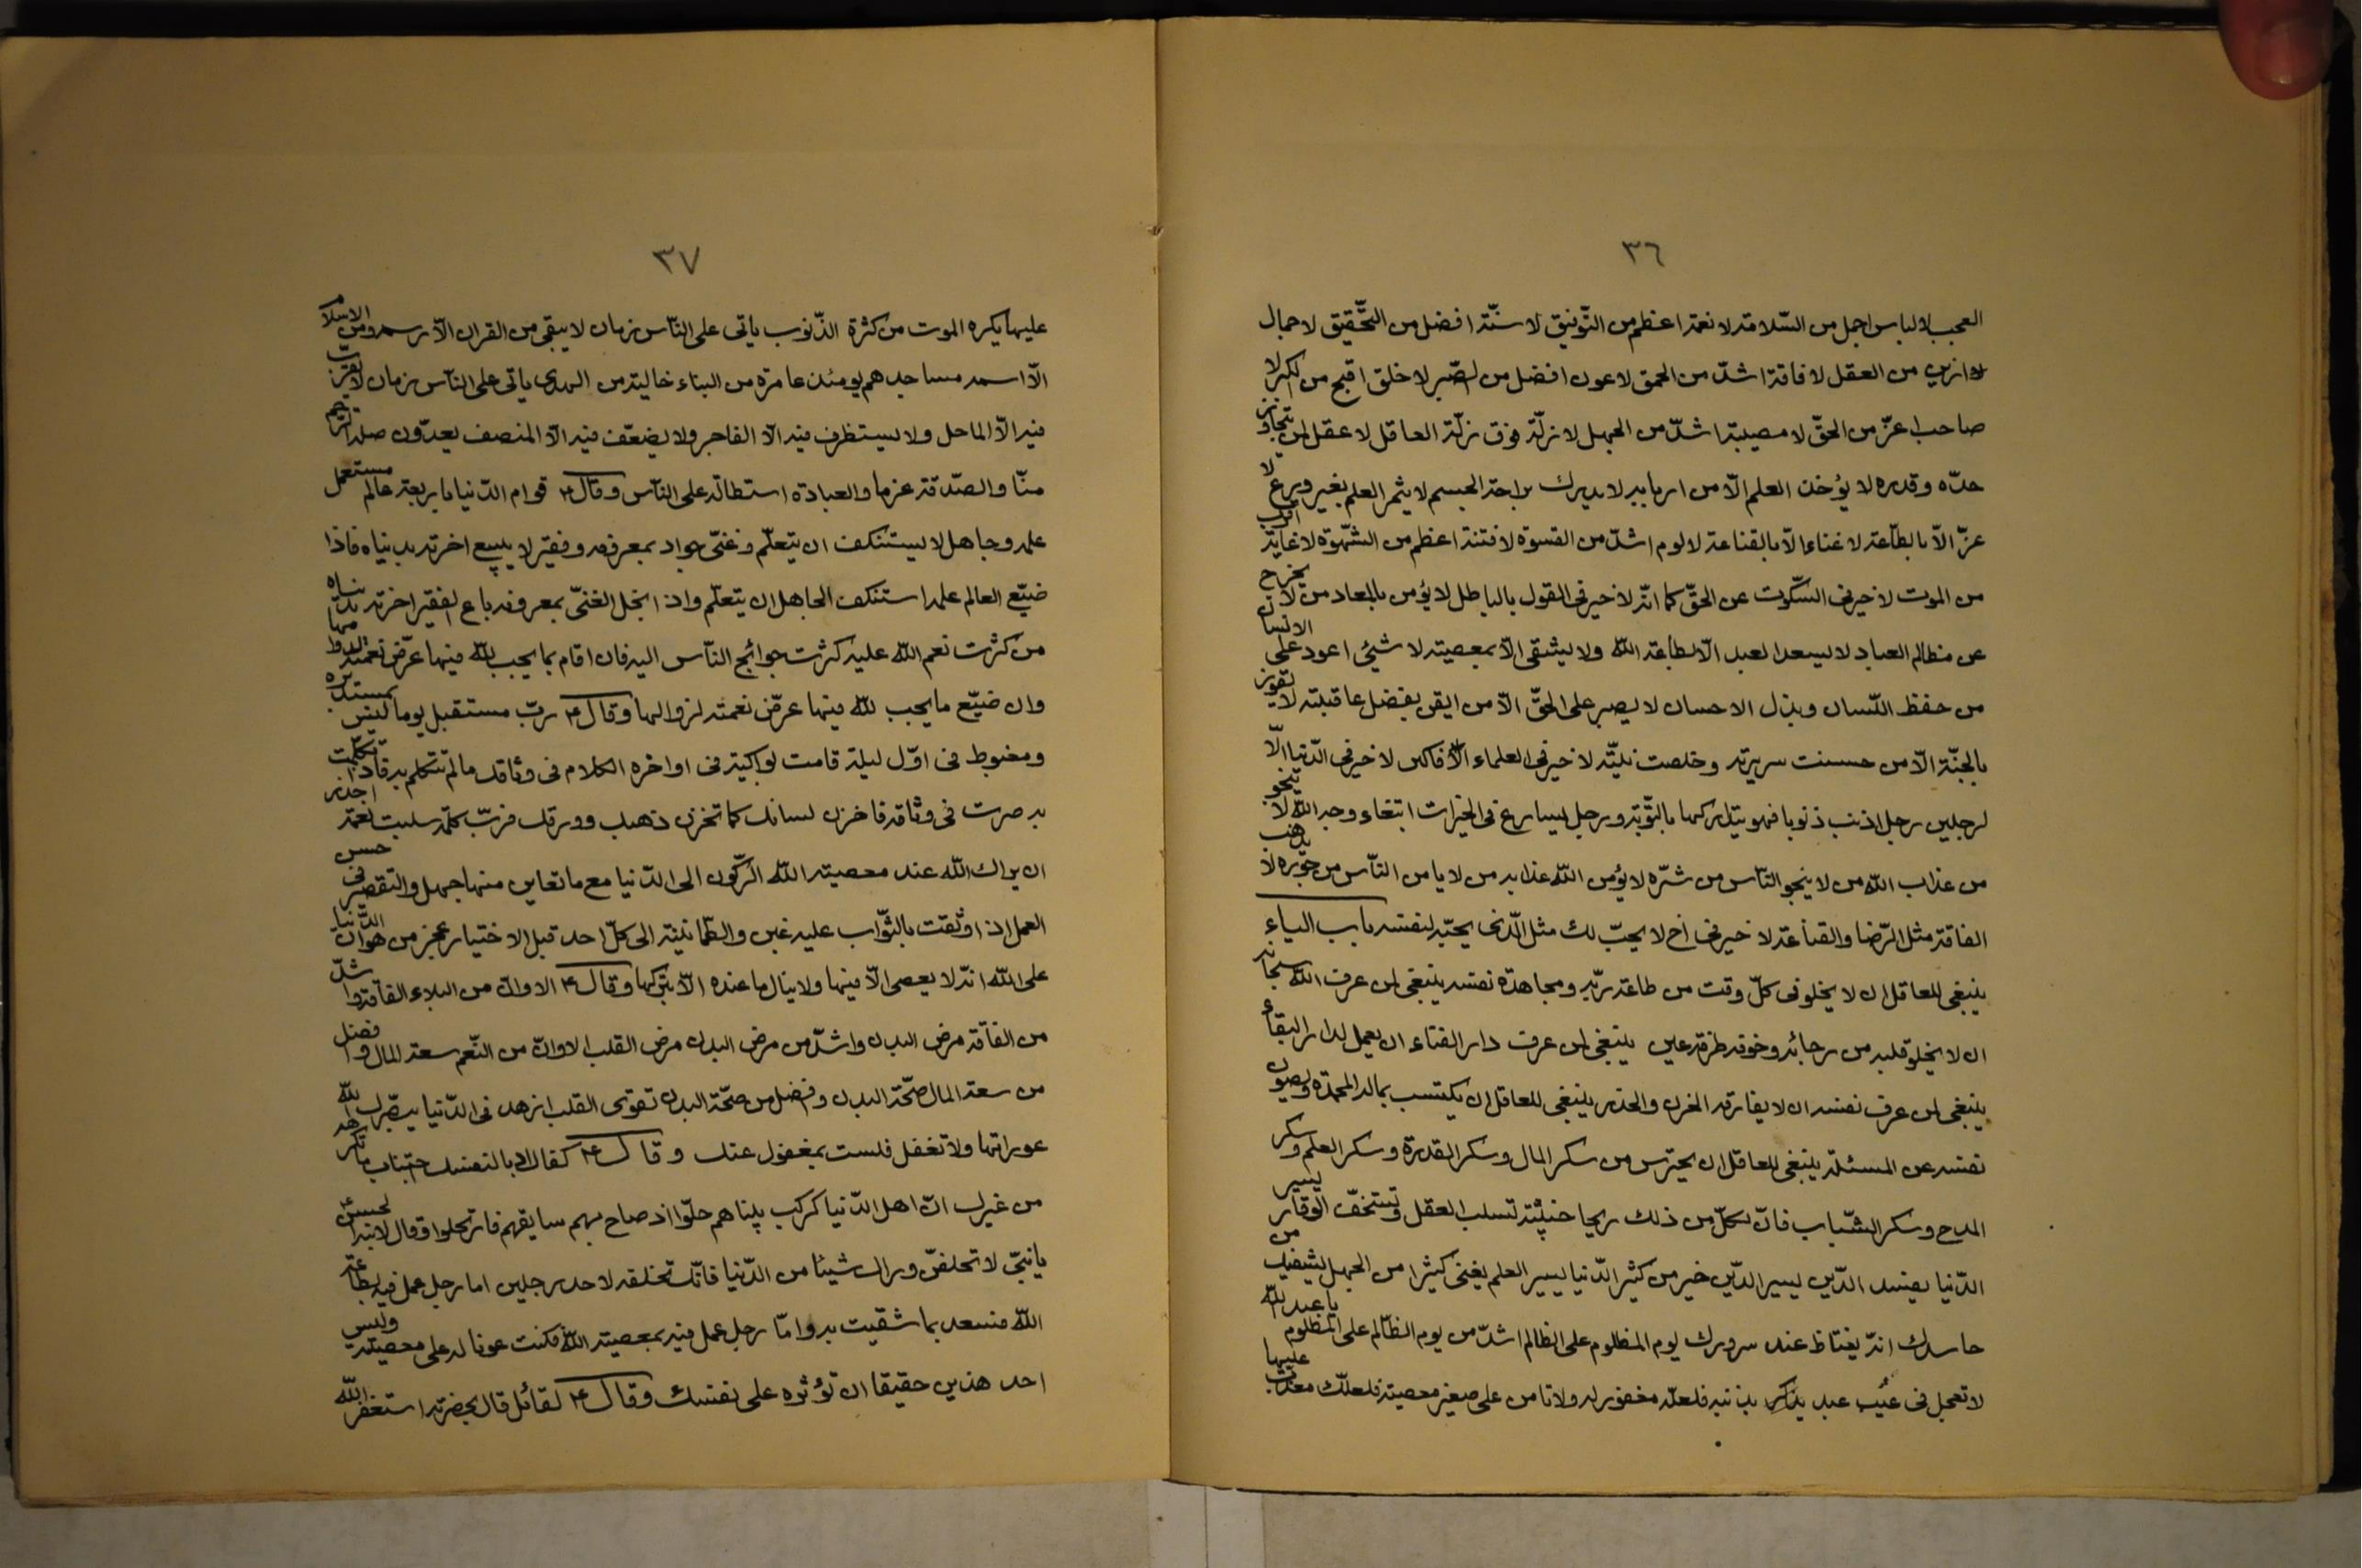 ٣٦
العجب لا لباس اجمل من السّلامة لا نعمة اعظم من التّوفيق لا سنّة افضل من التّحقيق لا جمال
لا ازين من العقل لا فاقة اشدّ من الحمق لا عون افضل من الصّبر لا خلق اقبح من الكبر لا
صاحب اعزّ من الحقّ لا مصيبة اشدّ من الجهل لا زلّة فوق زلّة العاقل لا عقل لمن تجاوز
حدّه وقدره لا يؤخذ العلم الّا من اربابه لا يدرك براحة الجسم لا يثمر العلم بغير ورع لا
عزّ الّا بالطّاعة لا غناء الّا بالقناعة لا لوم اشدّ من القسوة لا فتنة اعظم من الشّهوة لا غاية اقرب
من الموت لا خير فى السّكوت عن الحقّ كما انّه لا خير فى القول بالباطل لا يؤمن بالمعاد من لا يخرج
عن مظالم العباد لا يسعد العبد الّا بطاعة اللّه ولا يشقى الّا بمعصيته لا شيئ اعود على الانسان
من حفظ اللّسان وبذل الاحسان لا يصبر على الحقّ الّا من ايقن بفضل عاقبته لا يفوز
بالجنّة الّا من حسنت سريرته وخلصت نيّته لا خير فى العلماء الّا فاكس لا خير فى الدّنيا الّا
لرجلين رجل اذنب ذنوبا فهو يتداركها بالتّوبة ورجل يسارع فى الخيرات ابتغاء وجه اللّه لا ينجو
من عذاب اللّه من لا ينجو النّاس من شرّه لا يؤمن اللّه عذابه من لا يامن النّاس من جوره لا يذهب
الفاقة مثل الرّضا والقناعة لا خير فى اخ لا يحبّ لك مثل الّذى يحبّه لنفسه باب الياء
ينبغى للعاقل ان لا يخلو فى كلّ وقت من طاعة ربّه ومجاهدة نفسه ينبغى لمن عرف اللّه سبحانه
ان لا يخلو قلبه من رجائه وخوفه طرفة عين ينبغى لمن عرف دار الفناء ان يعمل لدار البقاء
ينبغى لمن عرف نفسه ان لا يفارقه الحزن والحذر ينبغى للعاقل ان يكتسب بماله المحمدة ويصون
نفسه عن المسئلة ينبغى للعاقل ان يحترس من سكر المال وسكر القدرة وسكر العلم وسكر
المدح وسكر الشّباب فانّ لكلّ من ذلك ريحا خبيثة تسلب العقل وتستخفّ الوقار يسير
الدّنيا يفسد الدّين يسير الدّين خير من كثير الدّنيا يسير العلم يغنى كثيرا من الجهل يشفيك من
حاسدك انّه يغتاظ عند سرورك يوم المظلوم على الظالم اشدّ من يوم الظّالم على المظلوم يا عبد اللّه
لا تعجل فى عيب عبد بذنبه فلعلّه مغفور له ولا تامن على صغير معصية فلعلّك معذّب عليها
٣٧
عليها يكره الموت من كثرة الذّنوب ياتى على النّاس زمان لا يبقى من القران الّا رسمه ومن الاسلام
الّا اسمه مساجدهم يومئذ عامرة من البناء خالية من الهدى ياتى على النّاس زمان لا يقرّب
فيه الّا الماحل ولا يستظرف فيه الّا الفاجر ولا يضعّف فيه الّا المنصف يعدّون صلة الرّحم
منّا والصّدقة غرما والعبادة استطالة على النّاس وقال ٤ قوام الدّنيا باربعة عالم مستعمل
علمه وجاهل لا يستنكف ان يتعلّم وغنىّ جواد بمعروفه وفقير لا يبيع اخرته بدنياه فاذا
ضيّع العالم علمه استنكف الجاهل ان يتعلّم واذا بخل الغنىّ بمعروفه باع الفقير اخرته بدنياه
من كثرت نعم اللّه عليه كثرت حوائج النّاس اليه فان اقام بما يجب للّه فيها عرّض نعمته لدوامها
وان ضيّع ما يجب للّه فيها عرّض نعمته لزوالها وقال ٤ ربّ مستقبل يوما ليس بمستدبره
ومغبوط فى اوّل ليلة قامت بواكيه فى اواخره الكلام فى وثاقك ما لم تتكلم به فاذا تكلّمت
به صرت فى وثاقه فاخزن لسانك كما تخزن ذهبك وورقك فربّ كلمة سلبت نعمة احذر
ان يراك اللّه عند معصيته الرّكون الى الدّنيا مع ما تعاين منها جهل والتقصير فى حسن
العمل اذا وثقت بالثّواب عليه غبن والطّمانينة الى كلّ احد قبل الاختيار عجز من هوان الدّنيا
على اللّه انّه لا يعصى الّا فيها ولا ينال ما عنده الّا بتركها وقال ٤ الا وانّ من البلاء الفاقة واشدّ
من الفاقة مرض البدن واشدّ من مرض البدن مرض القلب الا وانّ من النّعم سعة المال وافضل
من سعة المال صحّة البدن وافضل من صحّة البدن تقوى القلب ازهد فى الدّنيا يبصّرك اللّه
عوراتها ولا تغفل فلست بمغفول عنك وقال ٤ كفاك ادبا لنفسك اجتناب ما تكرهه
من غيرك انّ اهل الدّنيا كركب بيناهم حلّوا اذ صاح بهم سايقهم فارتحلوا وقال لابنه الحسن ٤
يا بنىّ لا تخلفنّ وراك شيئا من الدّنيا فانّك تخلفه لاحد رجلين اما رجل عمل فيه بطاعة
اللّه فسعد بما شقيت به وامّا رجل عمل فيه بمعصية اللّه فكنت عونا له على معصيته وليس
احد هذين حقيقا ان تؤثره على نفسك وقال ٤ لقائل قال بحضرته استغفر اللّه